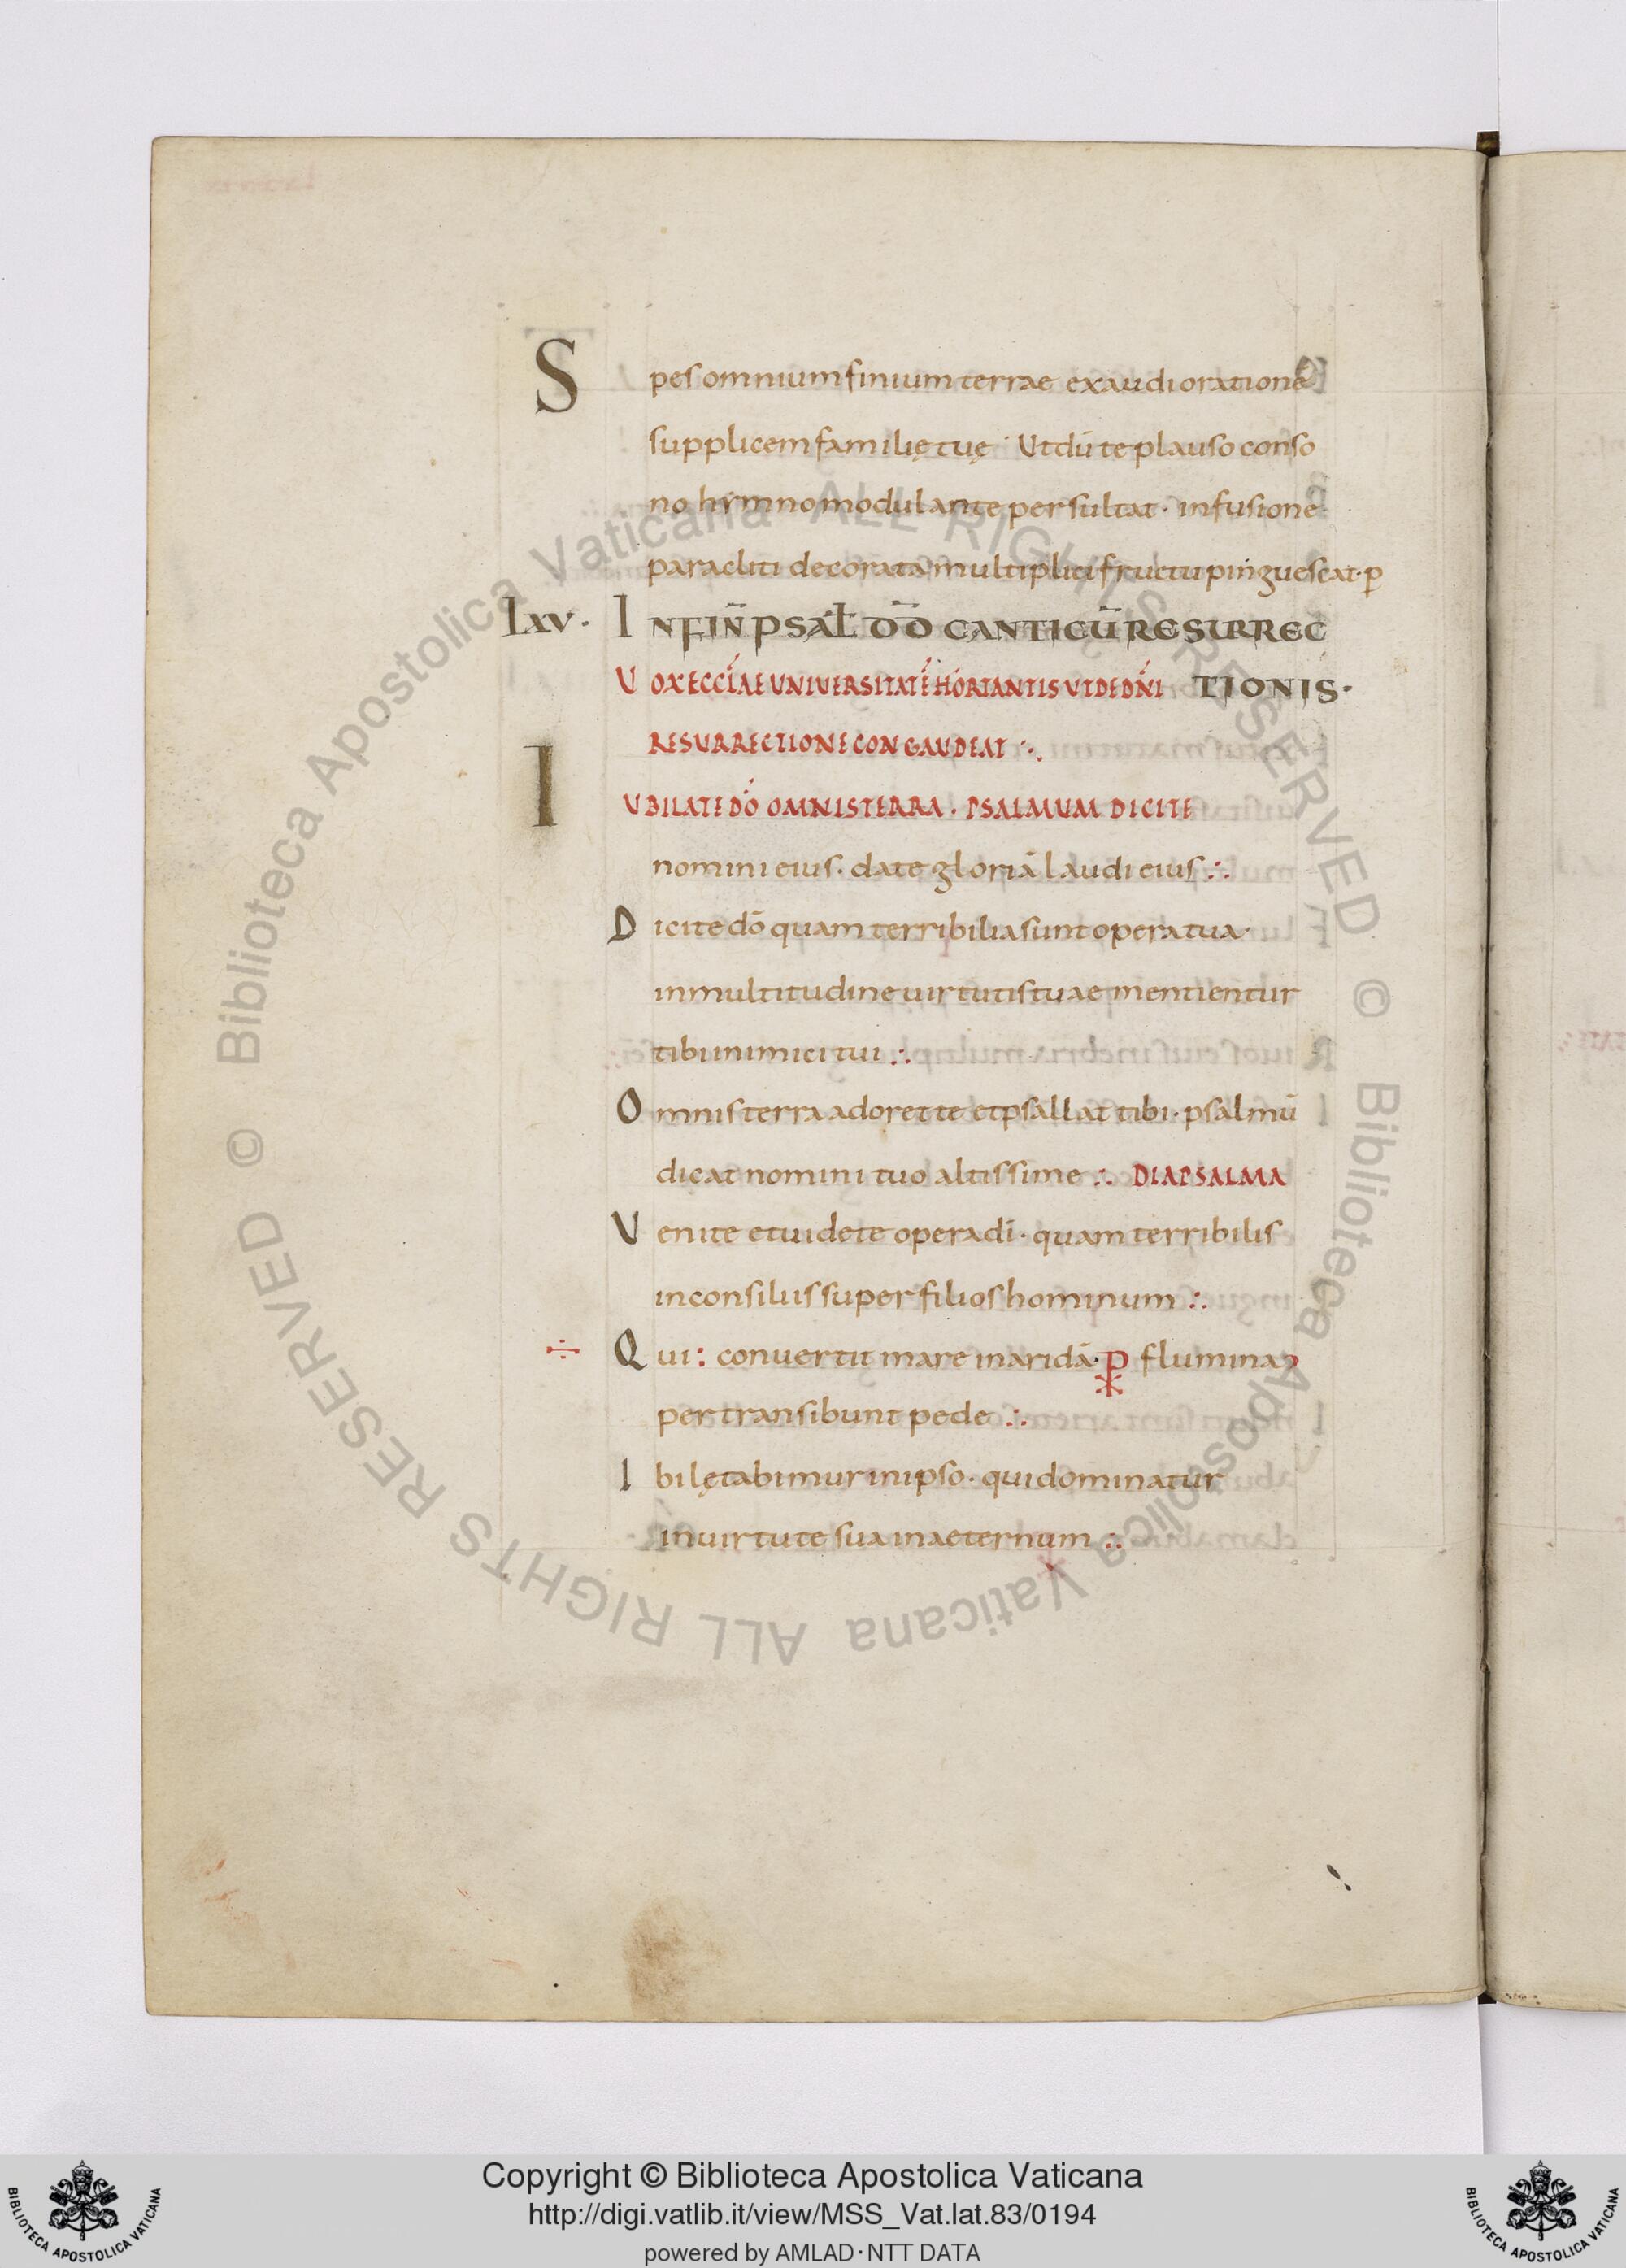 Spes omnium finium terrae exaudi orationē
supplicem familię tuę · Ut dū te plauso conso
no hymno modulante persultat · infusione
paracliti decorata multiplici fructu pinguescat · p
Lxv · IN FIN̄ PSAL̄ DD̄ CANTICŪ RESURREC
VOX ECCLIAE UNIVERSITATĒ HORTANTIS UT DE DN̄I TIONIS ·
RESURRECTIONE CONGAUDEAT ∴
IUBILATE DŌ OMNIS TERRA · PSALMUM DICITE
nomini eius · date gloriā laudi eius ∴
Dicite dō quam terribilia sunt opera tua ·
in multitudine uirtutis tuae mentientur
tibi inimici tui ∴
Omnis terra adoret te et psallat tibi · psalmū
dicat nomini tuo altissime ∴ DIAPSALMA
Venite et uidete opera dī · quam terribilis
in consiliis super filios hominum ∴
÷ Qui : conuertit mare in aridā · p flumina
pertransibunt pede ∴
Ibi lętabimur in ipso · qui dominatur
in uirtute sua in aeternum ∴
© Biblioteca Apostolica Vaticana ALL RIGHTS RESERVED © Biblioteca Apostolica Vaticana ALL RIGHTS RESERVED
Copyright © Biblioteca Apostolica Vaticana
http://digi.vatlib.it/view/MSS_Vat.lat.83/0194
powered by AMLAD·NTT DATA
BIBLIOTECA APOSTOLICA VATICANA
BIBLIOTECA APOSTOLICA VATICANA